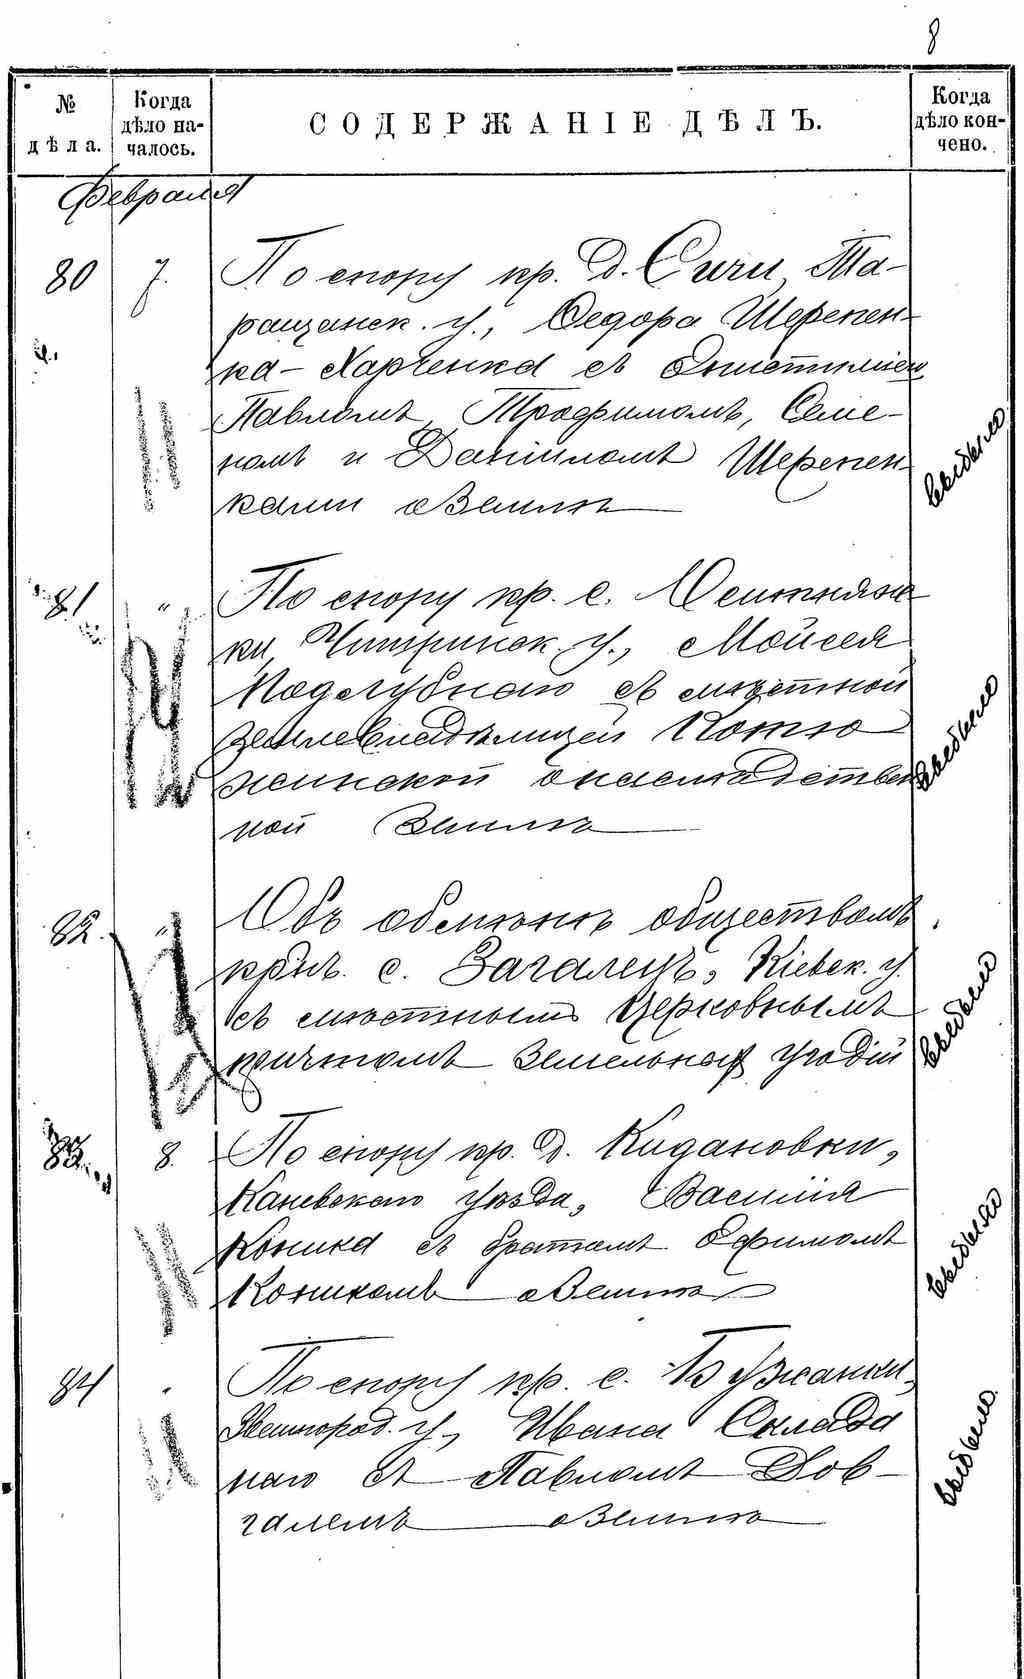 8
№ дѣла.
Когда дѣло началось.
СОДЕРЖАНІЕ ДѢЛЪ.
Когда дѣло кончено.
Февраля
80 7. По спору кр. д. Сичи, Та-
ращанск. у., Федора Шерепен-
ка-Харченка съ
Павломъ, Трофимомъ, Семе-
номъ и Даніиломъ Шерепен-
ками о землѣ
выбыло
81 " По спору кр. с. Оситняж-
ки, Чигиринск. у., Моисея
Подлубнаго съ мѣстной
землевладѣлицей Котю
жинской о наслѣдствен
ной землѣ
выбыло
82. " Объ обмѣнѣ обществомъ
крн. с. Загалецъ, Кіевск. у.
съ мѣстнымъ церковнымъ
причтомъ земельных угодій
выбыло
83. 8. По спору кр. д. Кидановки,
Каневскаго уѣзда, Василія
Кошка съ братомъ Ефимомъ
Кошкомъ о землѣ
выбыло
84 " По спору кр. с. Бужанки,
Звенигород. у., Ивана Склада
наго съ Павломъ Дов-
галемъ о землѣ
выбыло.